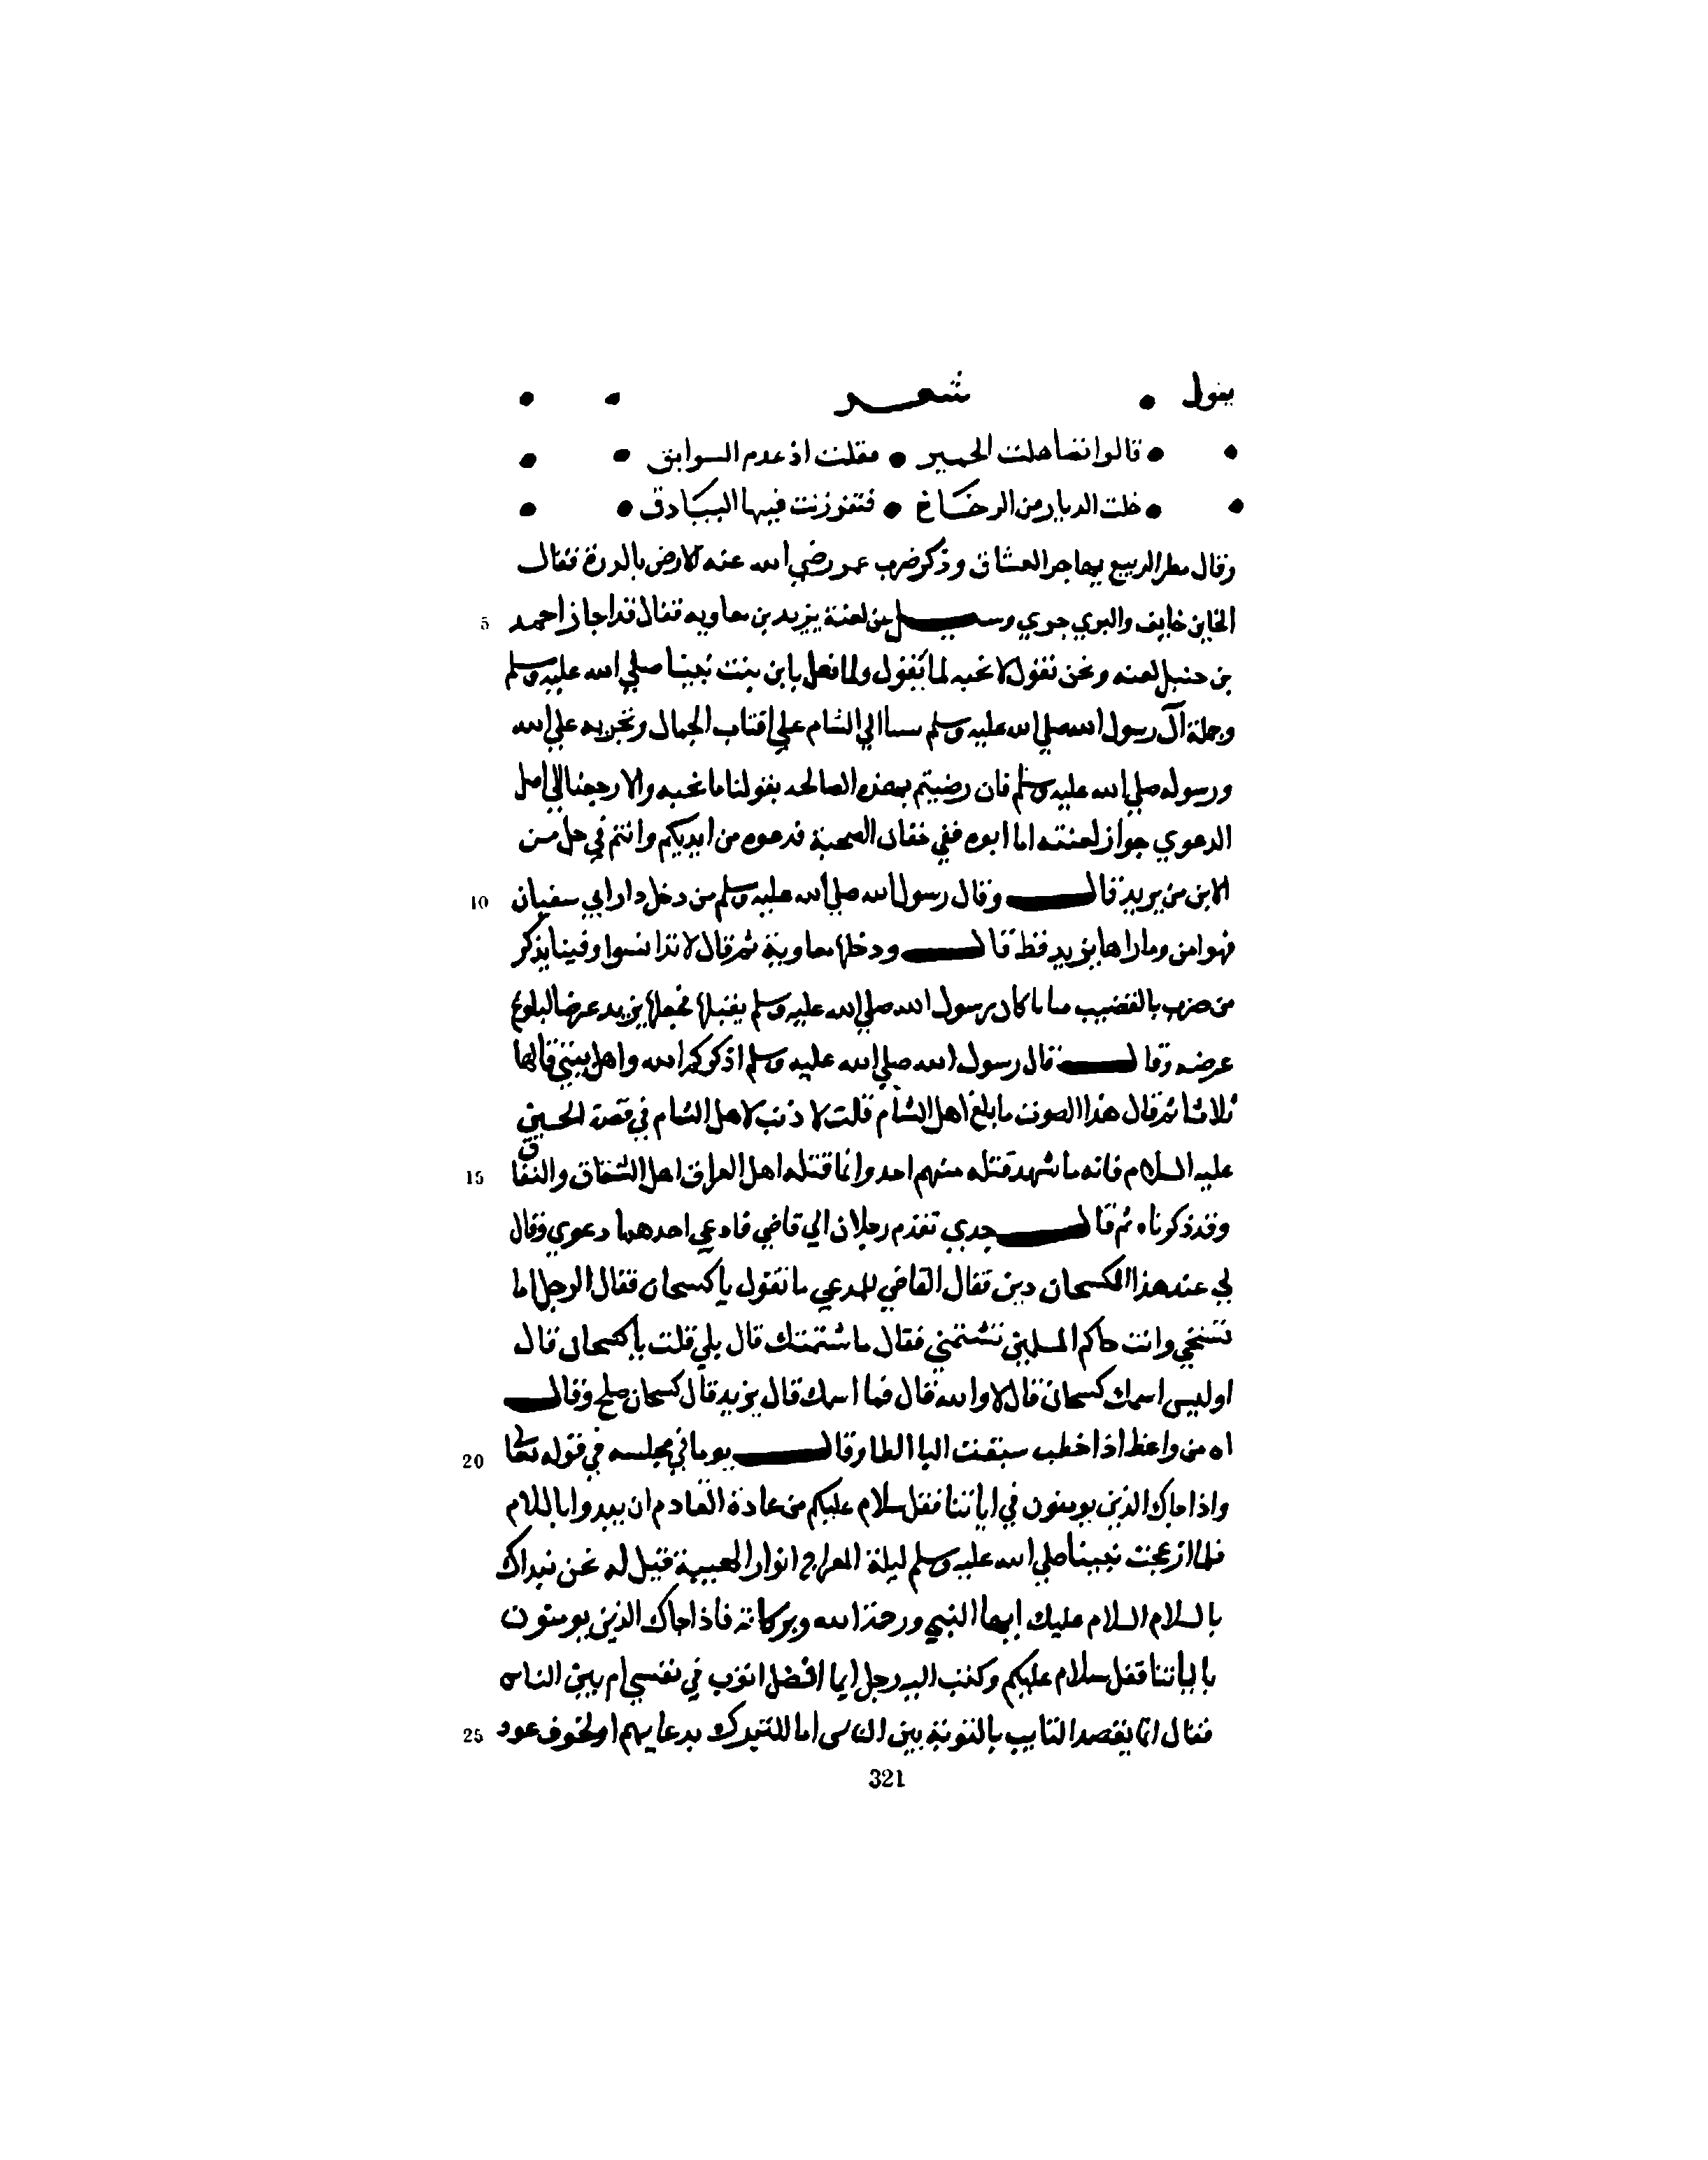 يقول • شعر • •
• • قالوا نفاهلت الحمير • فقلت اذ عدم السوابق • •
• • خلت الديار من الرخاخ • فتفرزنت فيها البيادق • •
وقال مطر الربيع يهاجر العشاق وذكر ضرب عمر رضي الله عنه الارض بالدرة فقال
الخاين خايف والبري جري وسيل من لعنة يزيد بن معاويه فقال قد اجاز احمد 5
بن حنبل لعنه ونحن نقول لا نحبه لما نقول ولما فعل بابن بنت نبينا صلي الله عليه وسلم
وحمله آل رسول الله صلي الله عليه وسلم سبا الي الشام علي اقتاب الجمال وتجريه علي الله
ورسوله صلي الله عليه وسلم فان رضيتم بهذه المصالحه بقولنا ما نحبه والا رجعنا الي اصل
الدعوي جواز لعنته اما ابوه ففي خفارة الصحبة فدعوه من ايديكم وانتم في حل من
الابن من يزيد قال وقال رسول الله صلي الله عليه وسلم من دخل دار ابي سفيان 10
فهو امن وما راها يزيد قط قال ودخلها معاوية ثم قال لا تدانسوا وفينا يذكر
من ضرب بالقضيب سايا كان رسول الله صلي الله عليه وسلم يقبلها فجعلها يزيد عرضا لبلوغ
عرضه وقال قال رسول الله صلي الله عليه وسلم اذكركم الله واهل بيتي قالها
ثلاثا ثم قال هذا الصوت ما بلغ اهل الشام قلت لا ذنب لاهل الشام في قصة الحسين
عليه السلام فانه ما شهد قتله منهم احد وانما قتله اهل العراق اهل الشقاق والنفاق 15
وقد ذكرناه ثم قال جدي تقدم رجلان الي قاضي فادعي احدهما دعوي وقال
لي عند هذا الكسحان دين فقال القاضي للمدعي ما تقول يا كسحان فقال الرجل اما
تستحي وانت حاكم المسلمين تشتمني فقال ما شتمتك قال بلي قلت يا كسحان قال
اوليس اسمك كسحان قال لا والله قال فما اسمك قال يزيد قال كسحان صلح وقال
اه من واعظ اذا خطب سبقت اليا الطا وقال يوما في مجلسه في قوله تعالي 20
واذا جاك الذين يومنون في اياتنا فقل سلام عليكم من عادة القادم ان يبدوا بالسلام
فلما ازعجت نبينا صلي الله عليه وسلم ليلة المعراج انوار الهيبة قيل له نحن نبداك
بالسلام السلام عليك ايها النبي ورحمة الله وبركاته فاذا جاك الذين يومنون
باياتنا فقل سلام عليكم وكتب اليه رجل ايما افضل اتوب في نفسي ام بين الناس
فقال انما يقصد التايب بالتوبة بين الناس اما للتبرك بدعايهم او لخوف عود 25
321